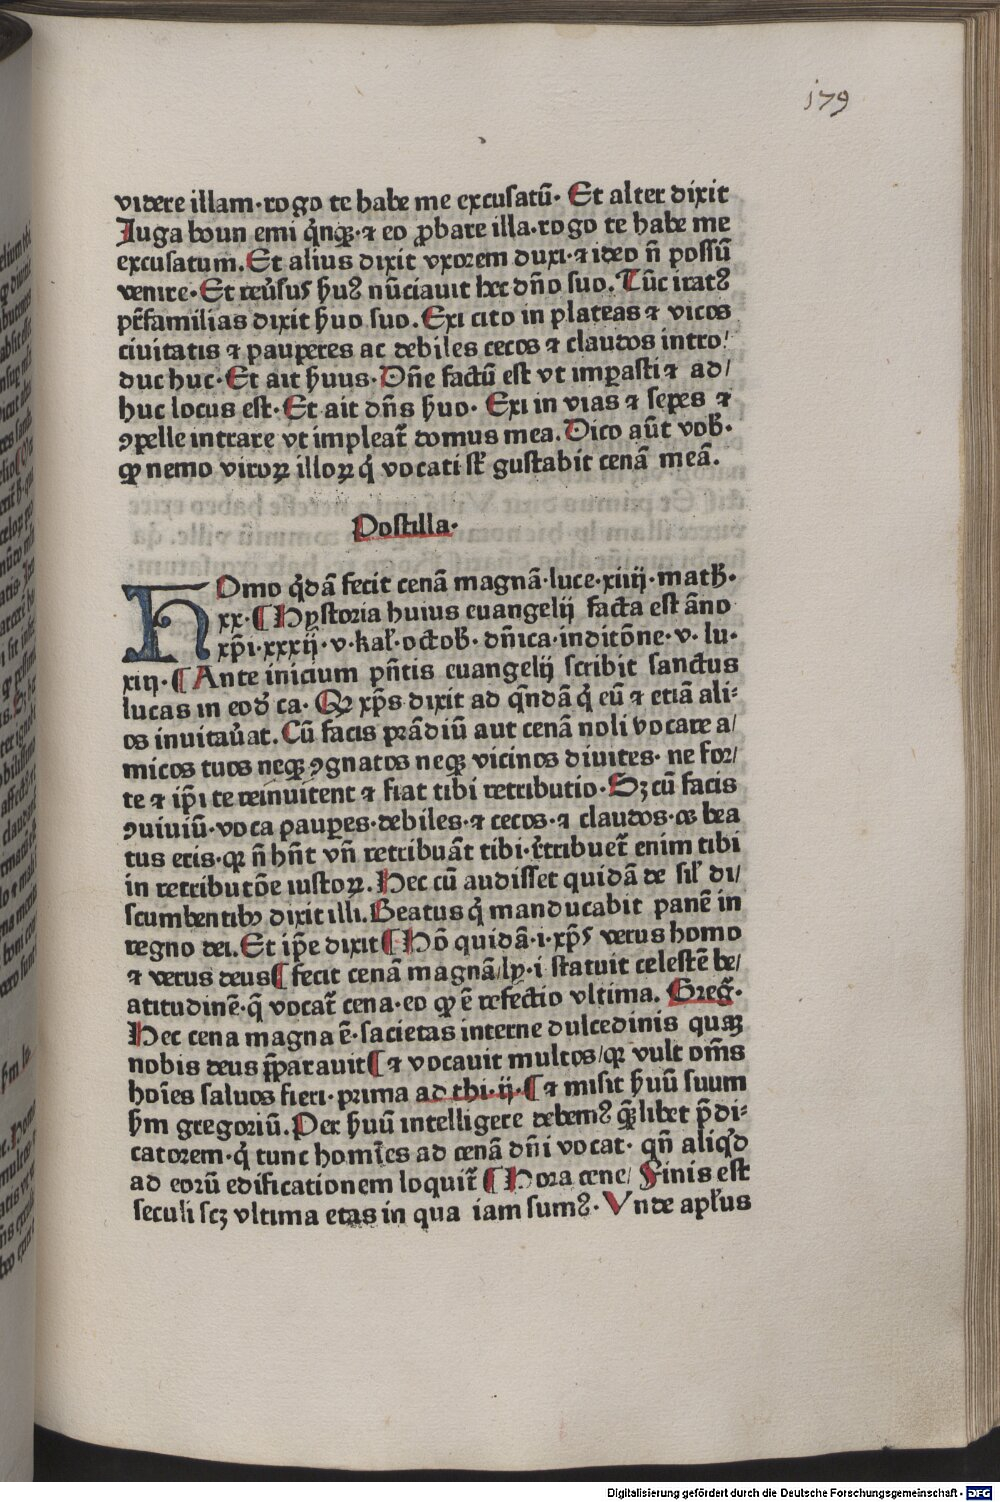 179
videre illam·rogo te habe me excusatū· Et alter dixit
Iuga boum emi q̇nqꝫ·⁊ eo ꝓbare illa.rogo te habe me
excusatum.Et alius dixit vxorem duxi·⁊ ideo n̄ possū
venire·Et reu̇sus ẜuꝰ nūciauit hec dn̄o suo.Tūc iratꝰ
pr̄familias dixit ẜuo suo.Exi cito in plateas ⁊ vicos
ciuitatis ⁊ pauperes ac debiles cecos ⁊ claudos intro/
duc huc·Et ait ẜuus·Dn̄e factū est vt imꝑasti⁊ ad/
huc locus est·Et ait dn̄s ẜuo· Exi in vias ⁊ sepes ⁊
ꝯpelle intrare vt impleat̄ domus mea.Dico aūt vob̄·
qꝫ nemo viroꝝ illoꝝ q̇ vocati st̄ gustabit cenā meā.
Postilla·
HOmo q̇dā fecit cenā magnā·luce·xiiij·math̄·
xx·¶Hystoria huius euangelij facta est āno
xp̄i·xxxij·v·kal̄·octob̄·dn̄ica·inditōne·v·lu·
xiij·¶Ante inicium pn̄tis euangelij scribit sanctus
lucas in eod̄ ca·Qꝫ xp̄s dixit ad q̄ndā q̇ eū ⁊ etiā ali-
os inuitau̇at.Cū facis prādiū aut cenā noli vocare a/
micos tuos neqꝫ ꝯgnatos neqꝫ vicinos diuites·ne for/
te ⁊ ip̄i te reinuitent ⁊ fiat tibi retributio·Sꝫ cū facis
ꝯuiuiū·voca pauꝑes·debiles·⁊ cecos·⁊ claudos·⁊ bea
tus eris·qꝛ n̄ hn̄t vn̄ retribuāt tibi·r̄tribuet̄ enim tibi
in retributōe iustoꝝ.Hec cū audisset quidā de sil̄ di/
scumbentibꝰ dixit illi.Beatus q̇ manducabit panē in
regno dei.Et ip̄e dixit¶Hō quidā·i·xp̄s verus homo
⁊ verus deus¶fecit cenā magnā/ly·i statuit celestē be/
atitudinē·q̄ vocat̄ cena·eo qꝫ ē refectio vltima. Greḡ·
Hec cena magna ē·sacietas interne dulcedinis quaꝫ
nobis deus p̄parauit¶⁊ vocauit multos/qꝛ vult om̄s
hoīes saluos fieri·prima ad thi·ij·¶⁊ misit ẜuū suum
ẜm gregoriū.Per ẜuū intelligere debemꝰ quēlibet p̄di-
catorem·q̇ tunc homīes ad cenā dn̄i vocat· qn̄ aliq̇d
ad eorū edificationem loquit̄¶Hora cene/Finis est
seculi scꝫ vltima etas in qua iam sumꝰ·Vnde apl̄us
Digitalisierung gefördert durch die Deutsche Forschungsgemeinschaft - DFG